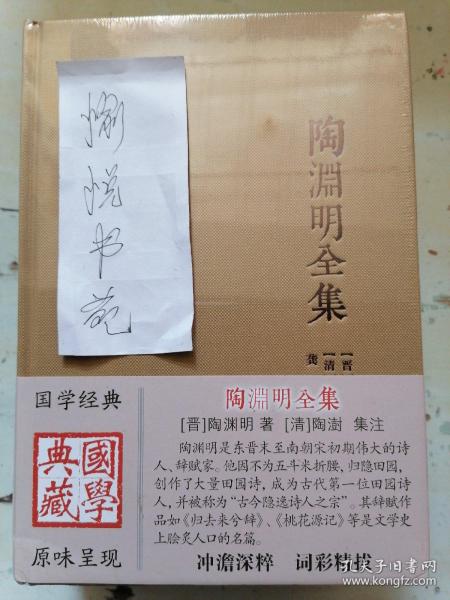 愉悦书苑
陶淵明全集
【晋
【清
龚
国学经典
國學
典藏
原味呈现
陶淵明全集
[晋]陶渊明 著 [清]陶澍 集注
陶渊明是东晋末至南朝宋初期伟大的诗
人、辞赋家。他因不为五斗米折腰,归隐田园,
创作了大量田园诗,成为古代第一位田园诗
人,并被称为“古今隐逸诗人之宗”。其辞赋作
品如《归去来兮辞》、《桃花源记》等是文学史
上脍炙人口的名篇。
冲澹深粹 词彩精拔
孔夫子旧书网